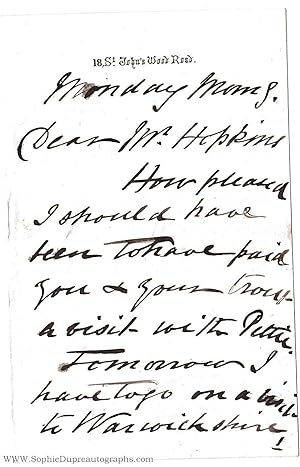 18, St. John's Wood Road.
Monday Morng.
Dear Mr. Hipkins
How pleased
I should have
been to have paid
you & your
a visit with Pettie.
Tomorrow I
have to go on a visit
to Warwickshire!
www.SophieDupreautographs.com